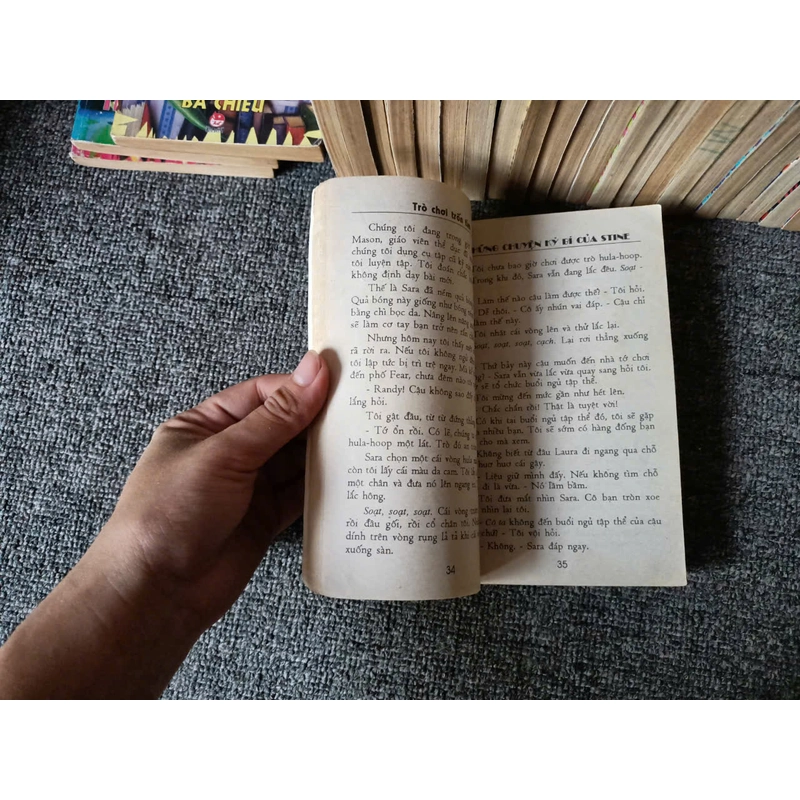 BA CHIÊU
Trò chơi trốn
Chúng tôi đang trong
Mason, giáo viên thể dục
chúng tôi dụng cụ tập cũ kỹ
tôi luyện tập. Tôi đoán
không định dạy bài mới.
Thế là Sara đã ném quả
Quả bóng này giống như bóng
bằng chì bọc da. Nâng lên
sẽ làm cơ tay bạn trở nên
Nhưng hôm nay tôi thấy
rã rời ra. Nếu tôi không ngủ
tôi lập tức bị trì trệ ngay. Mà
đến phố Fear, chưa đêm nào
- Randy! Cậu không sao
lắng hỏi.
Tôi gật đầu, từ từ đứng
- Tớ ổn rồi. Có lẽ, chúng
hula-hoop một lát. Trò đó
Sara chọn một cái vòng hula
còn tôi lấy cái màu da cam. Tôi
một chân và đưa nó lên ngang
lắc hông.
Soạt, soạt, soạt. Cái vòng
rồi đầu gối, rồi cổ chân tôi.
dính trên vòng rụng lả tả khi
xuống sàn.
34
CHUYỆN KỲ BÍ CỦA STINE
Tôi chưa bao giờ chơi được trò hula-hoop.
Trong khi đó, Sara vẫn đang lắc đều. Soạt -
Làm thế nào cậu làm được thế? - Tôi hỏi.
Dễ thôi. - Cô ấy nhún vai đáp. - Cậu chỉ
làm thế này.
Tôi nhặt cái vòng lên và thử lắc lại.
Soạt, soạt, soạt, cạch. Lại rơi thẳng xuống
Thứ bảy này cậu muốn đến nhà tớ chơi
- Sara vẫn vừa lắc vừa quay sang hỏi tôi.
sẽ tổ chức buổi ngủ tập thể.
Tôi mừng đến mức gần như hét lên.
- Chắc chắn tôi! Thật là tuyệt vời!
Có khi tại buổi ngủ tập thể đó, tôi sẽ gặp
nhiều bạn. Tôi sẽ sớm có hàng đống bạn
cho mà xem.
Không biết từ đâu Laura đi ngang qua chỗ
huơ huơ cái gậy.
- Liệu giữ mình đấy. Nếu không tìm chỗ
đi là vừa. - Nó lầm bầm.
Tôi đưa mắt nhìn Sara. Cô bạn tròn xoe
nhìn lại tôi.
- Có ta không đến buổi ngủ tập thể của cậu
chứ? - Tôi vội hỏi.
- Không. - Sara đáp ngay.
35